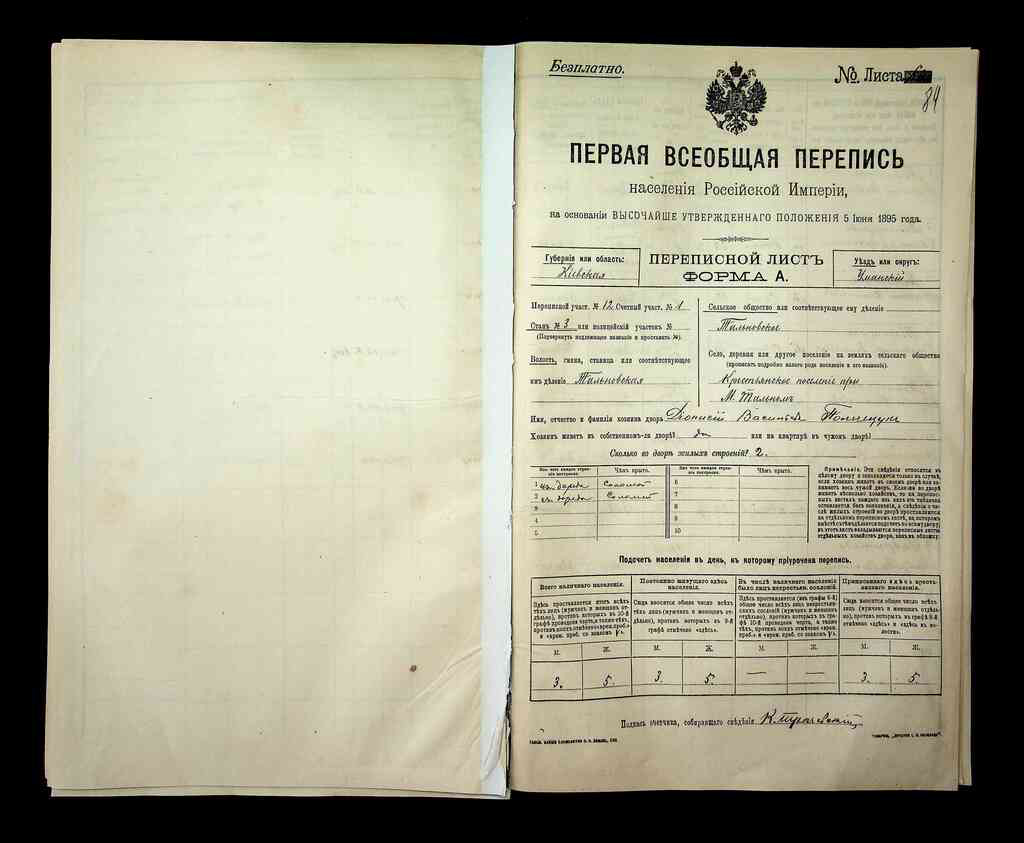 Безплатно.
№ Листа
84
ПЕРВАЯ ВСЕОБЩАЯ ПЕРЕПИСЬ
населенія Россійской Имперіи,
на основаніи ВЫСОЧАЙШЕ УТВЕРЖДЕННАГО ПОЛОЖЕНІЯ 5 Іюня 1895 года.
Губернія или область:
Кіевская
ПЕРЕПИСНОЙ ЛИСТЪ
ФОРМА А.
Уѣздъ или округъ:
Уманскій
Переписной участ. № 12 Счетный участ. № 1
Станъ № 3 или полицейскій участокъ №
(Подчеркнуть надлежащее названіе и проставить №).
Волость, гмина, станица или соотвѣтствующее
имъ дѣленіе Тальновская
Сельское общество или соотвѣтствующее ему дѣленіе
Тальновское
Село, деревня или другое поселеніе на земляхъ сельскаго общества
(прописать подробно какого рода поселеніе и его названіе).
Крестьянское поселеніе при
М. Тальномъ
Имя, отчество и фамилія хозяина двора Діонисій Васильев Полищук
Хозяинъ живетъ въ собственномъ-ли дворѣ? да или на квартирѣ въ чужомъ дворѣ?
Сколько во дворѣ жилыхъ строеній? 2.
Изъ чего каждое строеніе построено. Чѣмъ крыто. Изъ чего каждое строеніе построено. Чѣмъ крыто.
1 из дерева Соломой 6
2 из дерева Соломой 7
3 8
4 9
5 10
Примѣчаніе. Эти свѣдѣнія относятся къ
цѣлому двору и записываются только въ случаѣ,
если хозяинъ живетъ въ своемъ дворѣ или занимаетъ весь чужой дворъ. Если же во дворѣ
живетъ нѣсколько хозяйствъ, то на переписныхъ листахъ каждаго изъ нихъ эта табличка
оставляется безъ заполненія, а свѣдѣнія о числѣ жилыхъ строеній во дворѣ проставляются
на отдѣльномъ переписномъ листѣ, на которомъ
вмѣстѣ съ тѣмъ дѣлается подсчетъ по всему двору;
въ этотъ листъ вкладываются переписные листы
отдѣльныхъ хозяйствъ двора, какъ въ обложку.
Подсчетъ населенія въ день, къ которому пріурочена перепись.
Всего наличнаго населенія. Постоянно живущаго здѣсь населенія. Въ числѣ наличнаго населенія было лицъ некрестьян. сословій. Приписаннаго здѣсь крестьянскаго населенія.
Здѣсь проставляется итогъ всѣхъ лицъ (мужчинъ и женщинъ отдѣльно), противъ которыхъ въ 10-й графѣ проведена черта, а также тѣхъ, противъ коихъ отмѣчено «врем. преб.» Сюда вносится общее число всѣхъ тѣхъ лицъ (мужчинъ и женщинъ отдѣльно), противъ которыхъ въ 9-й графѣ отмѣчено «здѣсь». Сюда вносится общее число всѣхъ лицъ (мужчинъ и женщинъ отдѣльно), противъ которыхъ въ графѣ 8-й отмѣчено «здѣсь» и «здѣсь въ волости».
М. Ж. М. Ж. М. Ж. М. Ж.
3. 5. 3. 5. — — 3. 5.
Подпись счетчика, собиравшаго свѣдѣнія